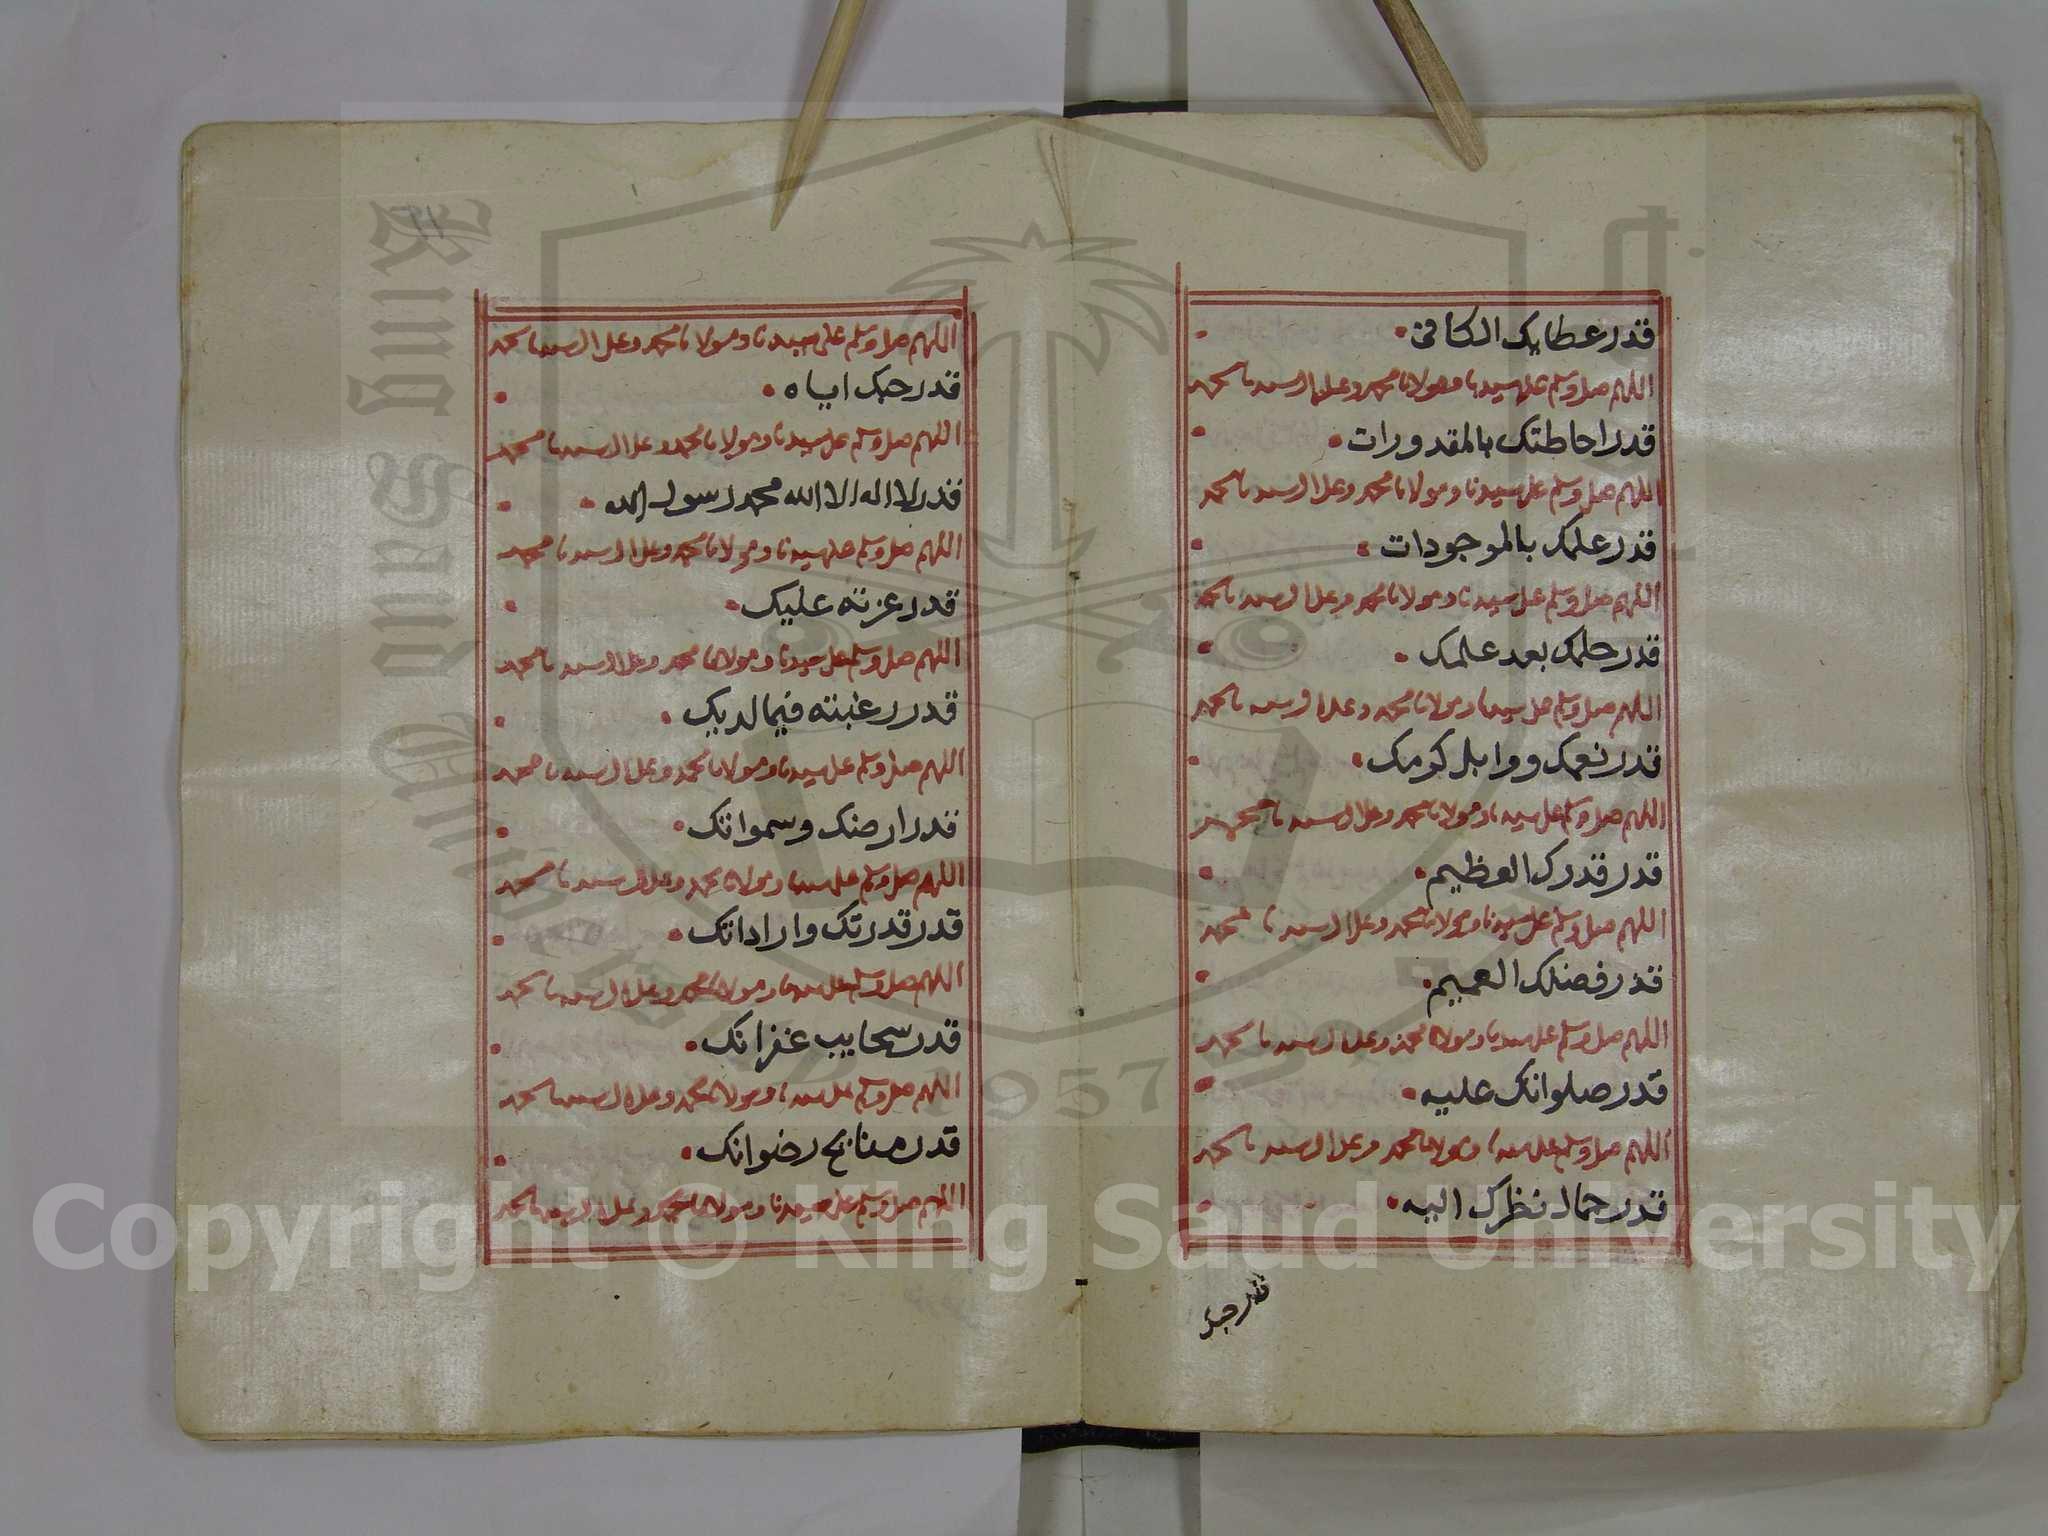 قدر عطايك الكافى
اللهم صل وسلم على سيدنا ومولانا محمد وعلى ال سيدنا محمد
قدر احاطتك بالمقدورات
اللهم صل وسلم على سيدنا ومولانا محمد وعلى ال سيدنا محمد
قدر علمك بالموجودات
اللهم صل وسلم على سيدنا ومولانا محمد وعلى ال سيدنا محمد
قدر حلمك بعد علمك
اللهم صل وسلم على سيدنا ومولانا محمد وعلى ال سيدنا محمد
قدر نعمك ووابل كرمك
اللهم صل وسلم على سيدنا ومولانا محمد وعلى ال سيدنا محمد
قدر قدرك العظيم
اللهم صل وسلم على سيدنا ومولانا محمد وعلى ال سيدنا محمد
قدر فضلك العميم
اللهم صل وسلم على سيدنا ومولانا محمد وعلى ال سيدنا محمد
قدر صلواتك عليه
اللهم صل وسلم على سيدنا ومولانا محمد وعلى ال سيدنا محمد
قدر جمال نظرك اليه
قدر حبك
اللهم صل وسلم على سيدنا ومولانا محمد وعلى ال سيدنا محمد
قدر حبك اياه
اللهم صل وسلم على سيدنا ومولانا محمد وعلى ال سيدنا محمد
قدر لا اله الا الله محمد رسول الله
اللهم صل وسلم على سيدنا ومولانا محمد وعلى ال سيدنا محمد
قدر عزته عليك
اللهم صل وسلم على سيدنا ومولانا محمد وعلى ال سيدنا محمد
قدر رغبته فيما لديك
اللهم صل وسلم على سيدنا ومولانا محمد وعلى ال سيدنا محمد
قدر ارضك وسمواتك
اللهم صل وسلم على سيدنا ومولانا محمد وعلى ال سيدنا محمد
قدر قدرتك واراداتك
اللهم صل وسلم على سيدنا ومولانا محمد وعلى ال سيدنا محمد
قدر سحايب غفرانك
اللهم صل وسلم على سيدنا ومولانا محمد وعلى ال سيدنا محمد
قدر منايح رضوانك
اللهم صل وسلم على سيدنا ومولانا محمد وعلى ال سيدنا محمد
King Saud University
1957
Copyright © King Saud University